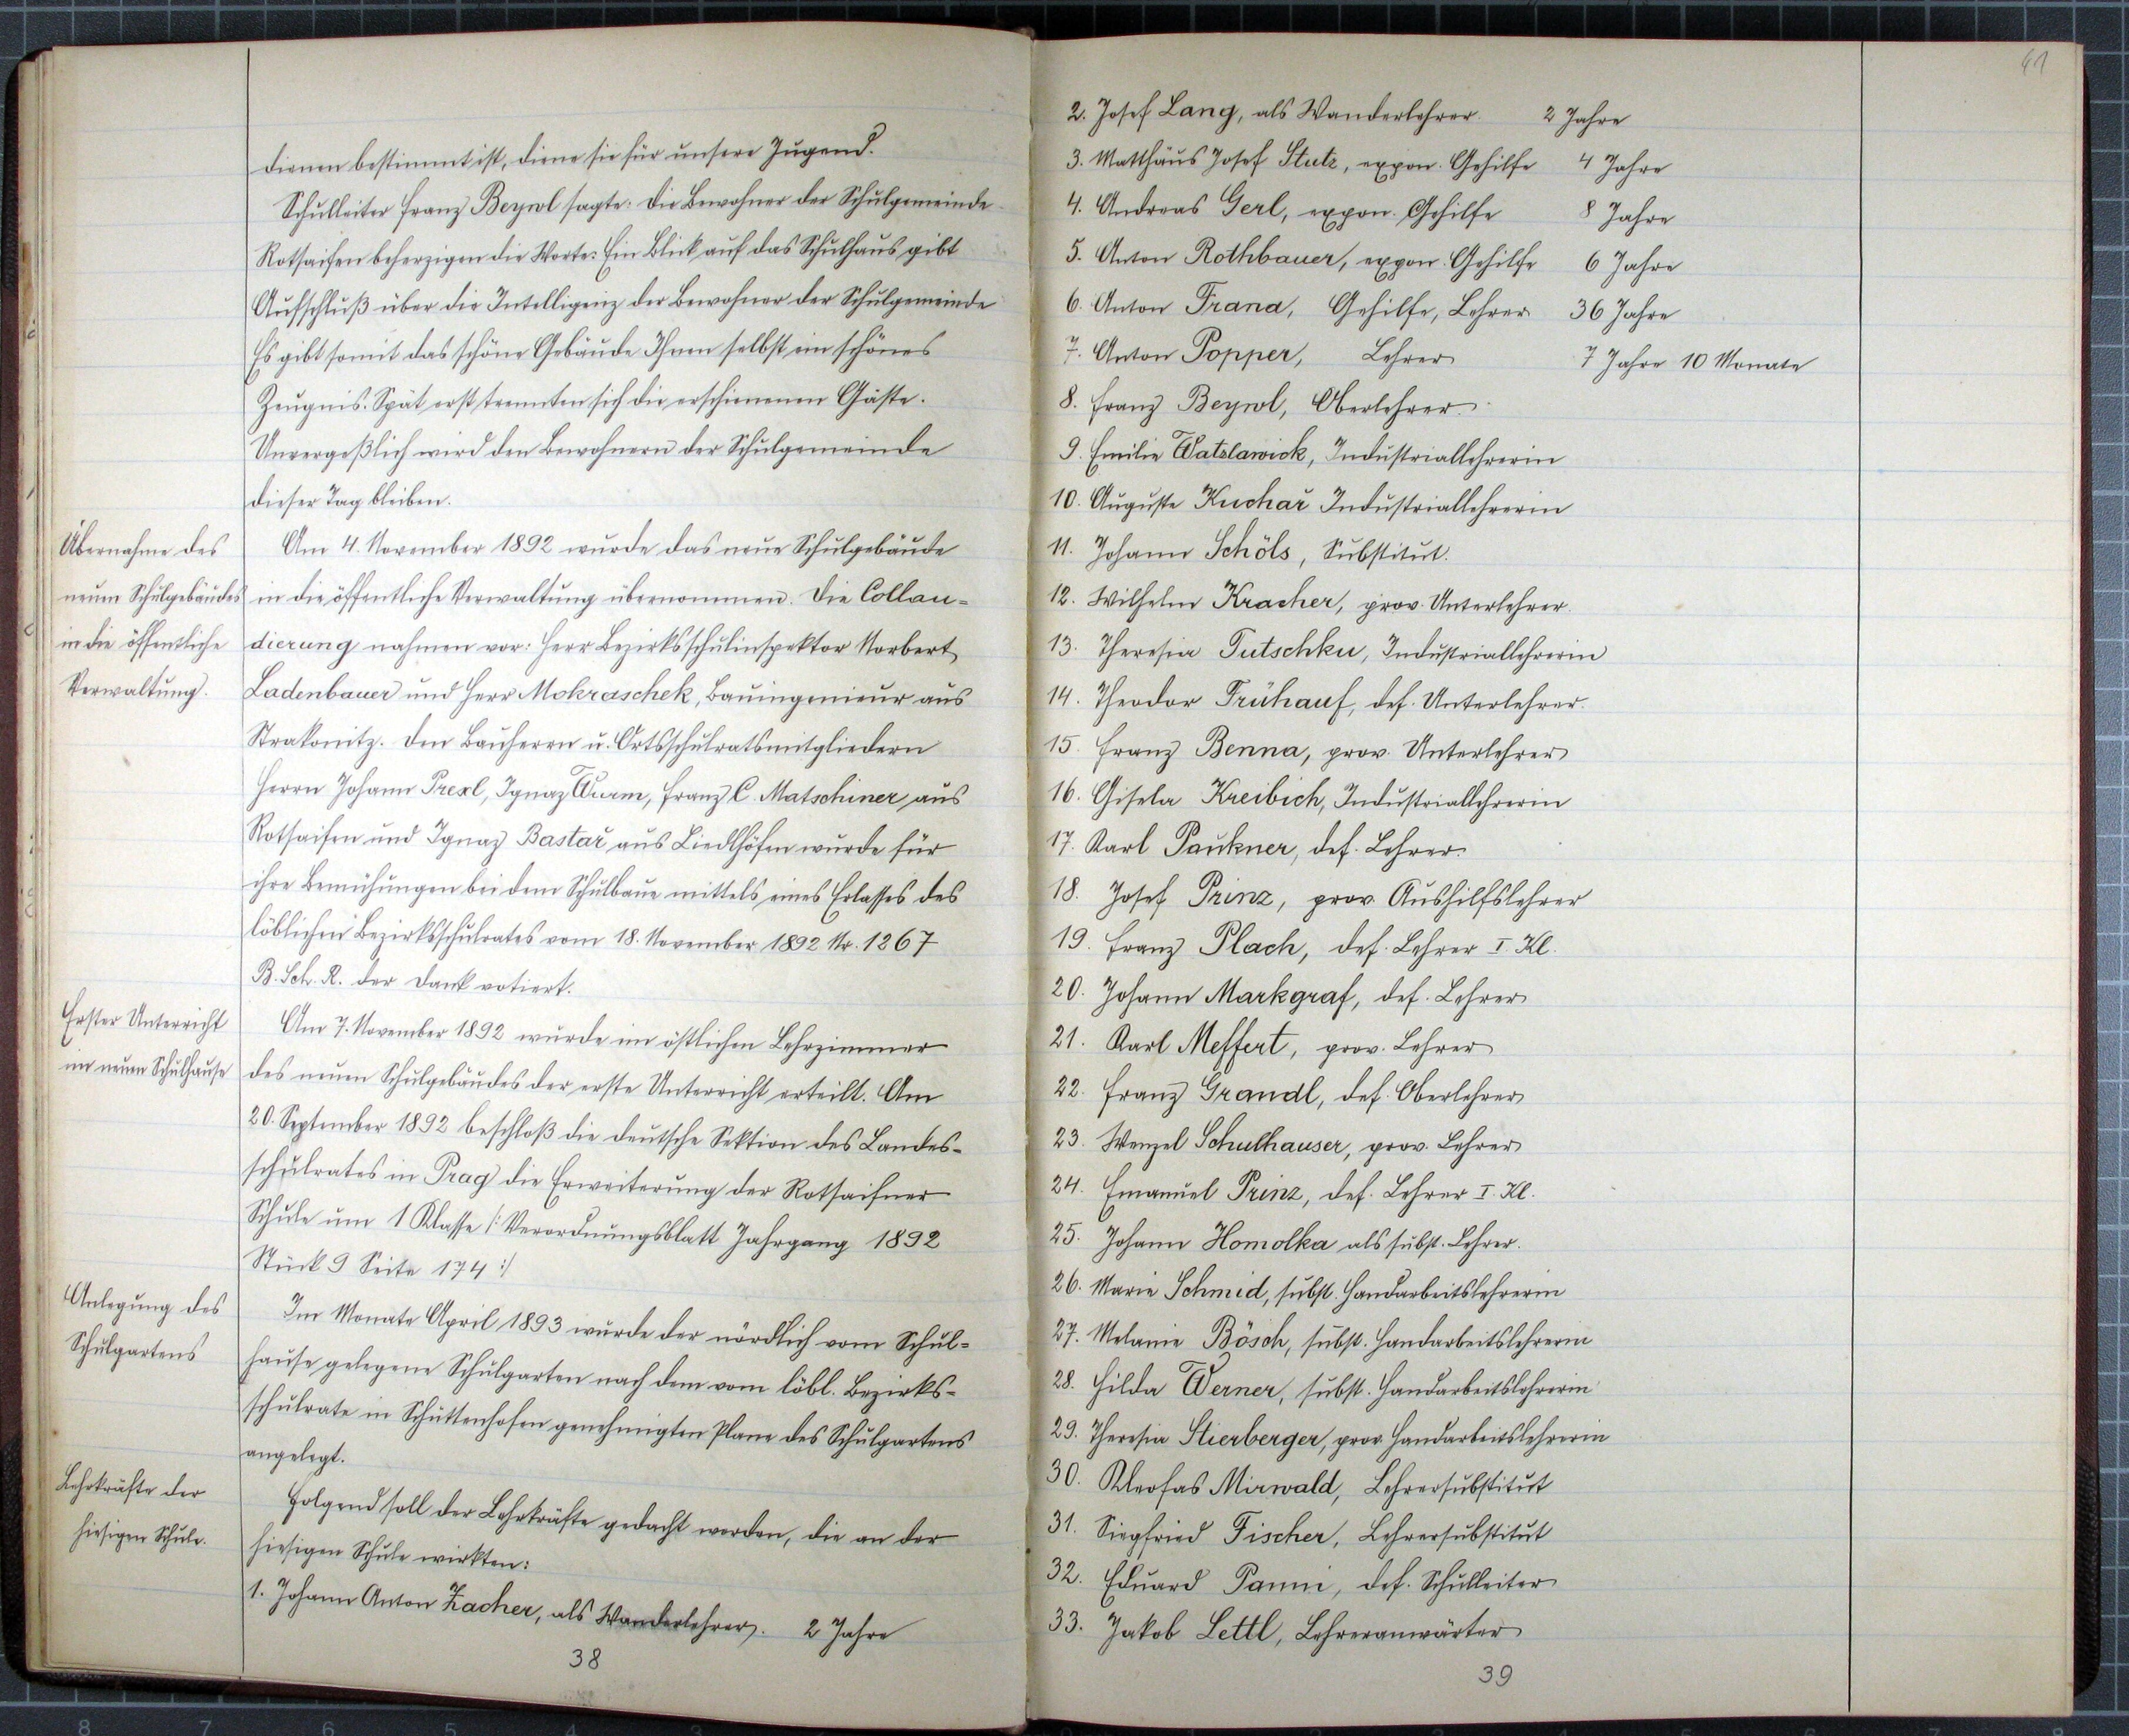 dienen bestimmt ist, diene sie für unsere Jugend.
Schulleiter Franz Beywl sagte: Die Bewohner der Schulgemeinde
Rotsaifen beherzigen die Worte: Ein Blick auf das Schulhaus gibt
Aufschluß über die Intelligenz der Bewohner der Schulgemeinde
Es gibt somit das schöne Gebäude Ihnen selbst ein schönes
Zeugnis. Spät erst trennten sich die erschienenen Gäste.
Unvergeßlich wird den Bewohnern der Schulgemeinde
dieser Tag bleiben.
Übernahme des
neuen Schulgebäudes
in die öffentliche
Verwaltung.
Am 4. November 1892 wurde das neue Schulgebäude
in die öffentliche Verwaltung übernommen. Die Collau-
dierung nahmen vor: Herr Bezirksschulinspektor Norbert
Ladenbauer und Herr Mokraschek, Bauingenieur aus
Strakonitz. Den Bauherren u. Ortsschulratsmitgliedern
Herrn Johann Prexl, Ignaz Wurm, Franz C. Matschiner aus
Rotsaifen und Ignaz Bastař aus Liedlhöfen wurde für
ihre Bemühungen bei dem Schulbaue mittels eines Erlasses des
löblichen Bezirksschulrates vom 18. November 1892 Nr. 1267
B. Sch. R. der Dank votiert.
Erster Unterricht
im neuen Schulhause
Am 7. November 1892 wurde im östlichen Lehrzimmer
des neuen Schulgebäudes der erste Unterricht erteilt. Am
20. September 1892 beschloß die deutsche Sektion des Landes-
schulrates in Prag die Erweiterung der Rotsaifner
Schule um 1 Klasse /: Verordnungsblatt Jahrgang 1892
Stück 9 Seite 174 :/
Anlegung des
Schulgartens
Im Monate April 1893 wurde der nördlich vom Schul-
hause gelegene Schulgarten nach dem vom löbl. Bezirks-
schulrate in Schüttenhofen genehmigten Plane des Schulgartens
angelegt.
Lehrkräfte der
hiesigen Schule.
Folgend soll der Lehrkräfte gedacht werden, die an der
hiesigen Schule wirkten:
1. Johann Anton Zacher, als Wanderlehrer. 2 Jahre
38
41
2. Josef Lang, als Wanderlehrer 2 Jahre
3. Matthäus Josef Stutz, expon. Gehilfe 4 Jahre
4. Andreas Gerl, expon. Gehilfe 8 Jahre
5. Anton Rothbauer, expon. Gehilfe 6 Jahre
6. Anton Frana, Gehilfe, Lehrer 36 Jahre
7. Anton Popper, Lehrer 7 Jahre 10 Monate
8. Franz Beywl, Oberlehrer.
9. Emilie Watzlawick, Industriallehrerin
10. Auguste Kuchař Industriallehrerin
11. Johann Schöls, Substitut.
12. Wilhelm Kracher, prov. Unterlehrer.
13. Theresia Tutschku, Industriallehrerin
14. Theodor Frühauf, def. Unterlehrer.
15. Franz Benna, prov. Unterlehrer
16. Gisela Kreibich, Industriallehrerin
17. Karl Paukner, def. Lehrer.
18. Josef Prinz, prov. Aushilfslehrer
19. Franz Plach, def. Lehrer I. Kl.
20. Johann Markgraf, def. Lehrer
21. Karl Meffert, prov. Lehrer
22. Franz Grandl, def. Oberlehrer
23. Wenzel Schulhauser, prov. Lehrer
24. Emanuel Prinz, def. Lehrer I. Kl.
25. Johann Homolka als subst. Lehrer.
26. Marie Schmid, subst. Handarbeitslehrerin
27. Melanie Bösch, subst. Handarbeitslehrerin
28. Hilda Werner, subst. Handarbeitslehrerin
29. Theresia Stierberger, prov. Handarbeitslehrerin
30. Kleofas Mirwald, Lehrersubstitut
31. Siegfried Fischer, Lehrersubstitut
32. Eduard Panni, def. Schulleiter
33. Jakob Lettl, Lehreranwärter
39